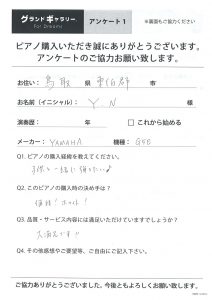 グランドギャラリー
For Dreams!
アンケート1
※裏面もご協力ください
ピアノ購入いただき誠にありがとうございます。
アンケートのご協力お願い致します。
お住い: 鳥取 県 東伯郡 市
お名前(イニシャル): Y.N 様
演奏歴: 年 □ これから始める
メーカー: YAMAHA 機種: G5D
Q1. ピアノの購入経緯を教えてください。
子供と一緒に弾きたい♪
Q2. このピアノの購入時の決め手は?
価格!
Q3. 品質・サービス内容には満足いただけていますでしょうか?
大満足です!!
Q4. その他感想やご要望等、ご自由にご記入下さい。
ご協力ありがとうございました。今後ともよろしくお願い致します。